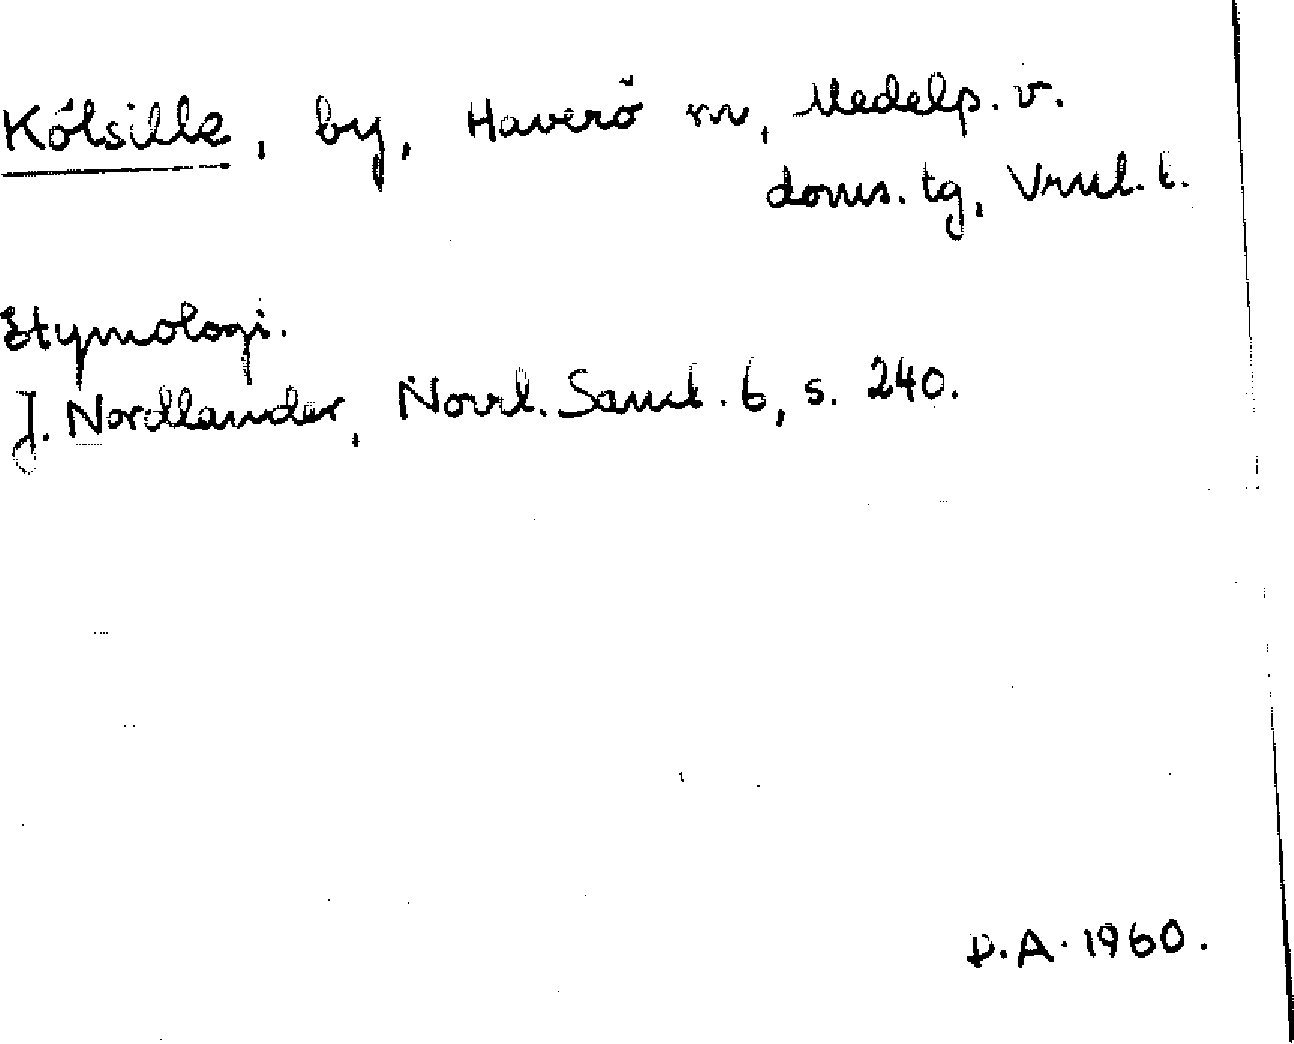 Kölsille, by, Haverö sn, Medelp. v.
doms. tg, Vrnl. l.
Etymologi.
J. Nordlander, Norrl. Saml. 6, s. 240.
D.A. 1960.